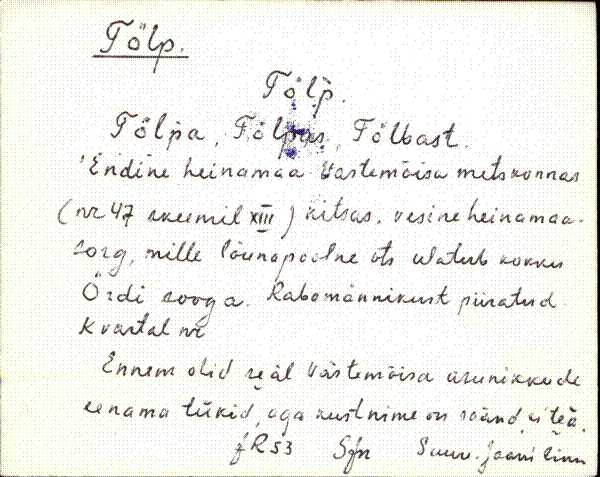 Tölp.
Tölp.
Tölpa, Tölpas, Tölbast.
Endine heinamaa Vastemõisa metskonnas
(nr 47 skeemil XIII) kitsas, vesine heinamaa-
sorg, mille lõunapoolne ots ulatub kokku
Ördi sooga. Rabamännikust piiratud.
Kvartal nr
Ennem olid seäl Västemõisa asunikkude
eenama tükid, aga kust nime on soand, ei teä.
R53 Sjn Suure-Jaani linn